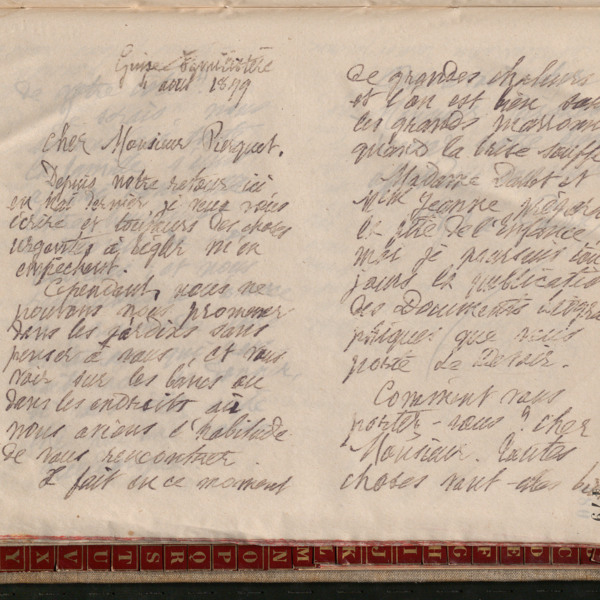 Guise Familistère
4 août 1899
cher Monsieur Pasquet.
Depuis notre retour ici
en mai dernier je veux vous
écrire et toujours des choses
urgentes à régler m'en
empêchent.
Cependant, nous ne
pouvons nous promener
dans les jardins sans
penser à vous, et vous
voir sur les bancs ou
dans les endroits où
nous avions l'habitude
de vous rencontrer.
Il fait en ce moment
de grandes chaleurs
et l'on est bien sous
les grands marronn
quand la brise souffle
Madame Dallet et
Mlle Jeanne prépar
la fête de l'Enfance
moi je poursuis tou
jours la publication
des Documents biogra
phiques que vous
porte Le Devoir.
Comment vous
portez-vous? cher
Monsieur. Toutes
choses vont-elles bi
Y X V U T S R Q P O N M L K J I H G F E D C